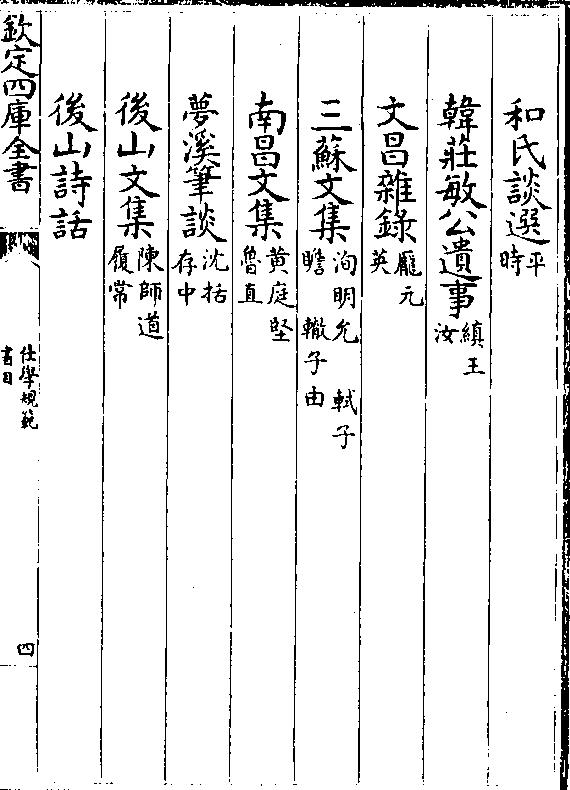 和氏談選平時
韓莊敏公遺事縝玉汝
文昌雜錄龎元英
三蘇文集洵明允　軾子瞻　轍子由
南昌文集黄庭堅魯直
夢溪筆談沈括存中
後山文集陳師道履常
後山詩話
欽定四庫全書
仕學規範書目
四